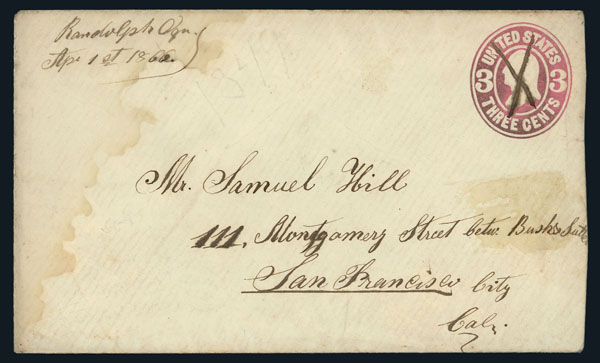 Randolph Ogn.
Apr 1st 1866.
UNITED STATES
3 3
THREE CENTS
Mr. Samuel Hill
111, Montgomery Street betw. Bush &
San Francisco City
Cal.